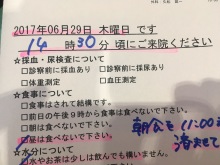 2017年06月29日 木曜日 です
14時30分 頃にご来院ください
☆採血・尿検査について
□診察前に採血あり □診察前に採尿あり
□体重測定 □血圧測定
☆食事について
□食事はされて結構です。
□前日の午後9時から食事しないで下さい。
□朝は食べないで下さい。
□昼は食べないで下さい。
朝食を11:00迄
済ませて
☆水分について
水やお茶は少しは飲んでも構いません。